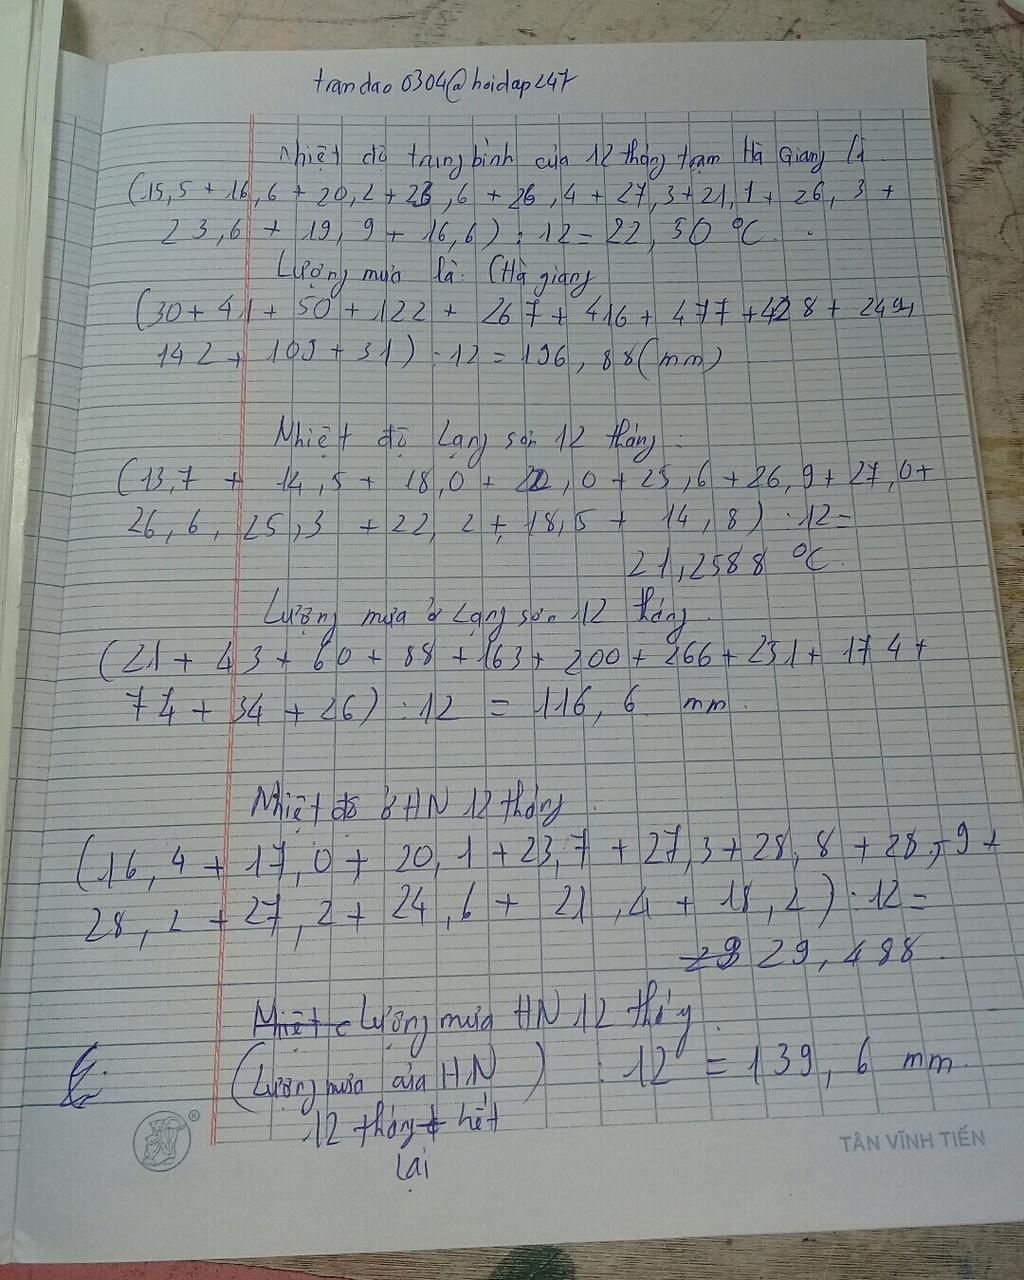 trandao0304@hoidap247
Nhiệt độ trung bình của 12 tháng trạm Hà Giang là
(15,5 + 16,6 + 20,2 + 23,6 + 26,4 + 27,3 + 21,1 + 26,3 +
23,6 + 19,9 + 16,6) : 12 = 22,30 °C.
Lượng mưa là: (Hà giang
(30 + 41 + 50 + 122 + 267 + 416 + 477 + 428 + 249+
142 + 109 + 31) : 12 = 196,88 (mm)
Nhiệt độ Lạng sơn 12 tháng:
(13,7 + 14,5 + 18,0 + 22,0 + 25,6 + 26,9 + 27,0+
26,6, 25,3 + 22,2 + 18,5 + 14,8) : 12=
21,2588 °C.
Lượng mưa ở Lạng sơn 12 tháng.
(21 + 43 + 60 + 88 + 163 + 200 + 266 + 231 + 174 +
74 + 34 + 26) : 12 = 116,6 mm.
Nhiệt độ ở HN 12 tháng.
(16,4 + 17,0 + 20,1 + 23,7 + 27,3 + 28,8 + 28,9 +
28,2 + 27,2 + 24,6 + 21,4 + 18,2) : 12=
29,488.
Lượng mưa HN 12 tháng.
(Lượng mưa của HN) : 12 = 139,6 mm.
12 tháng hết
lại
TÂN VĨNH TIẾN